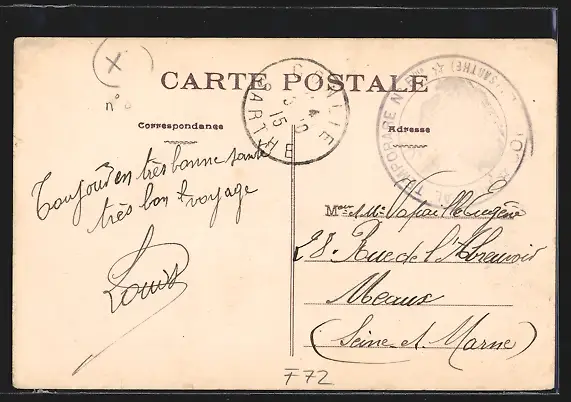 CARTE POSTALE
Correspondance
Adresse
n°
CONLIE
SARTHE
15
TEMPORAIRE N°
(SARTHE)
Toujours en très bonne santé
très bon voyage
Louis
Mr et Me Eugène
28. Rue de l'Abreuvoir
Meaux
(Seine et Marne)
F72